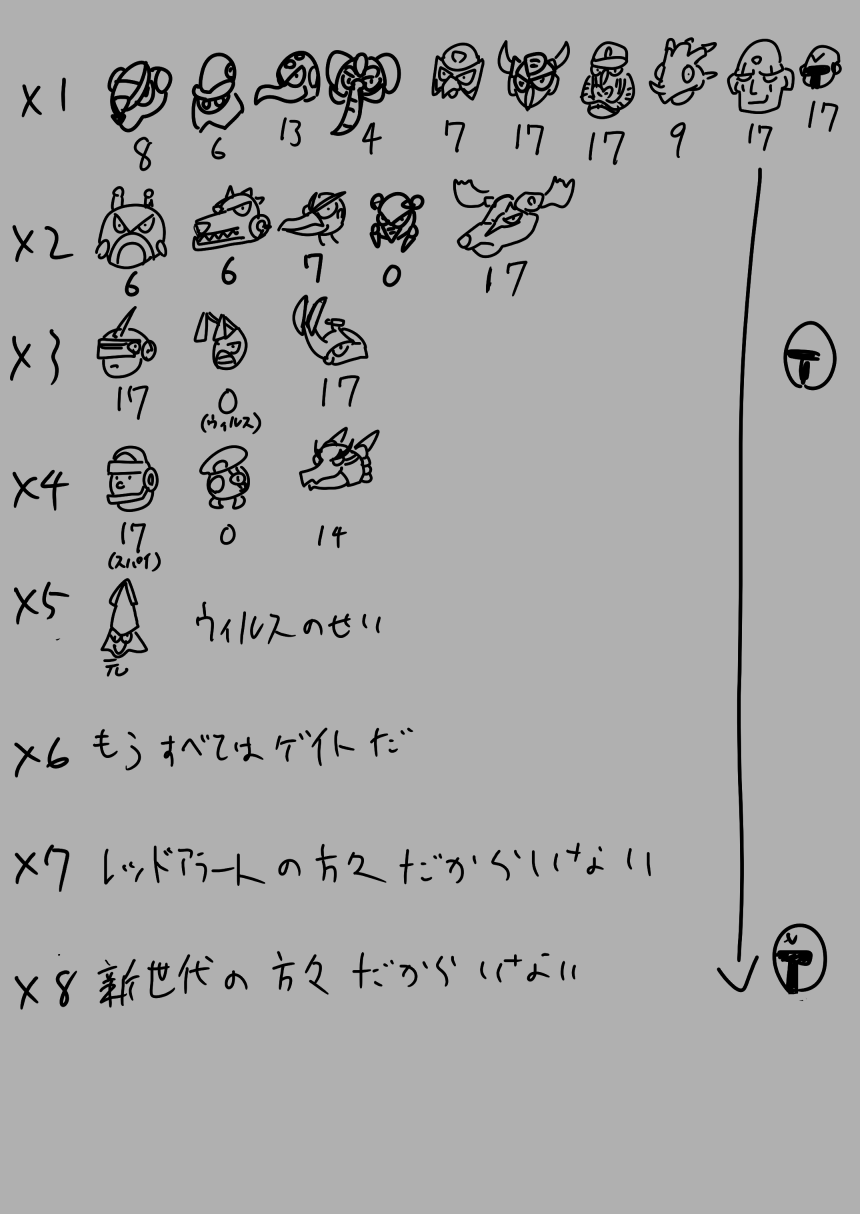 X1
8 6 13 4 7 17 17 9 17 17
X2
6 6 7 0 17
X3
17 0 17
(ウィルス)
X4
17 0 14
(スパイ)
X5 ウィルスのせい
元
X6 もうすべてはゲイトだ
X7 レッドアラートの方々だからいない
X8 新世代の方々だからいない